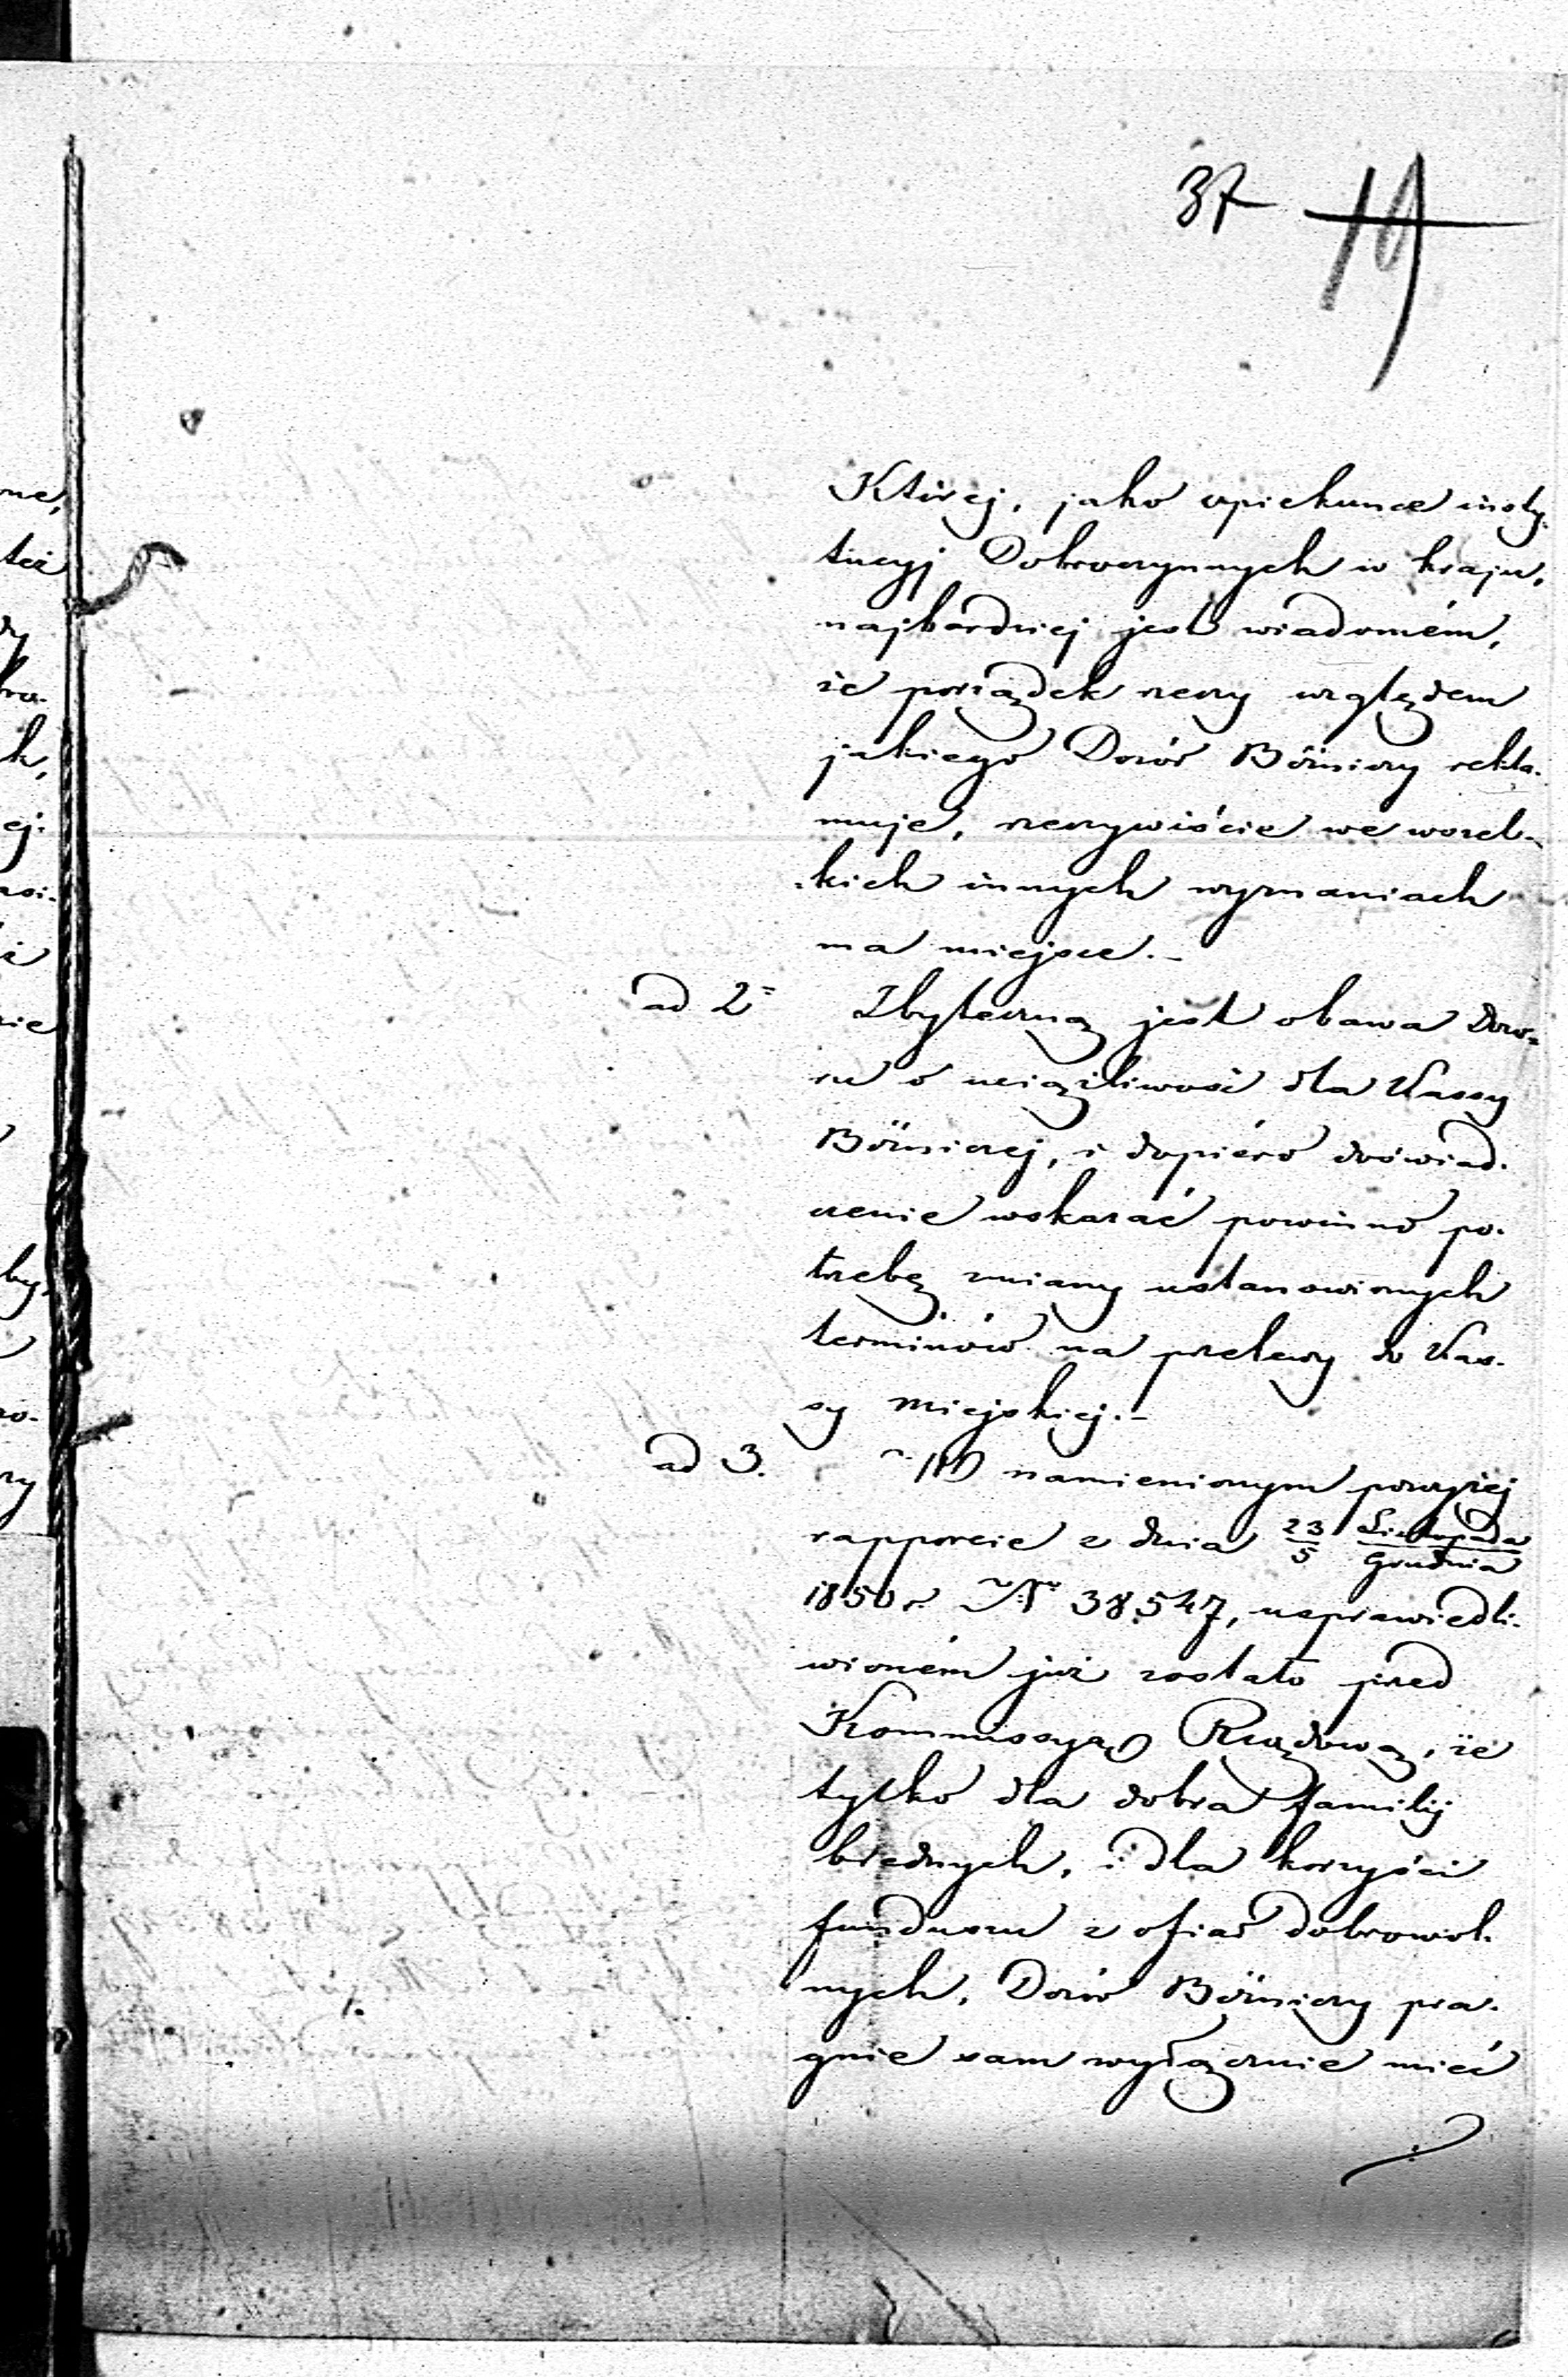 37 19
Której, jako opiekunce insty-
tucyj Dobroczynnych w kraju,
najbardziej jest wiadomém,
że porządek rzeczy względem
jakiego Dozór Bóżniczy rekla-
muje, rzeczywiście we wszel-
-kich innych wyznaniach
ma miejsce.-
ad 2= Zbyteczną jest obawa Dozo-
ru o uciążliwość dla Kassy
Bóżniczej, i dopiéro doświad-
czenie wskazać powinno po-
trzebę zmiany ustanowionych
terminów na przelewy do Kas-
sy Miejskiej.-
ad 3. W namienionym powyżej
rapporcie z dnia 23/5 Listopada/Grudnia
1850 r. Nr 38,547, usprawiedli-
wioném już zostało przed
Kommissyą Rządową, że
tylko dla dobra familij
biednych, i dla korzyści
funduszu z ofiar dobrowol-
nych, Dozór Bóżniczy pra-
gnie sam wyłącznie mieć